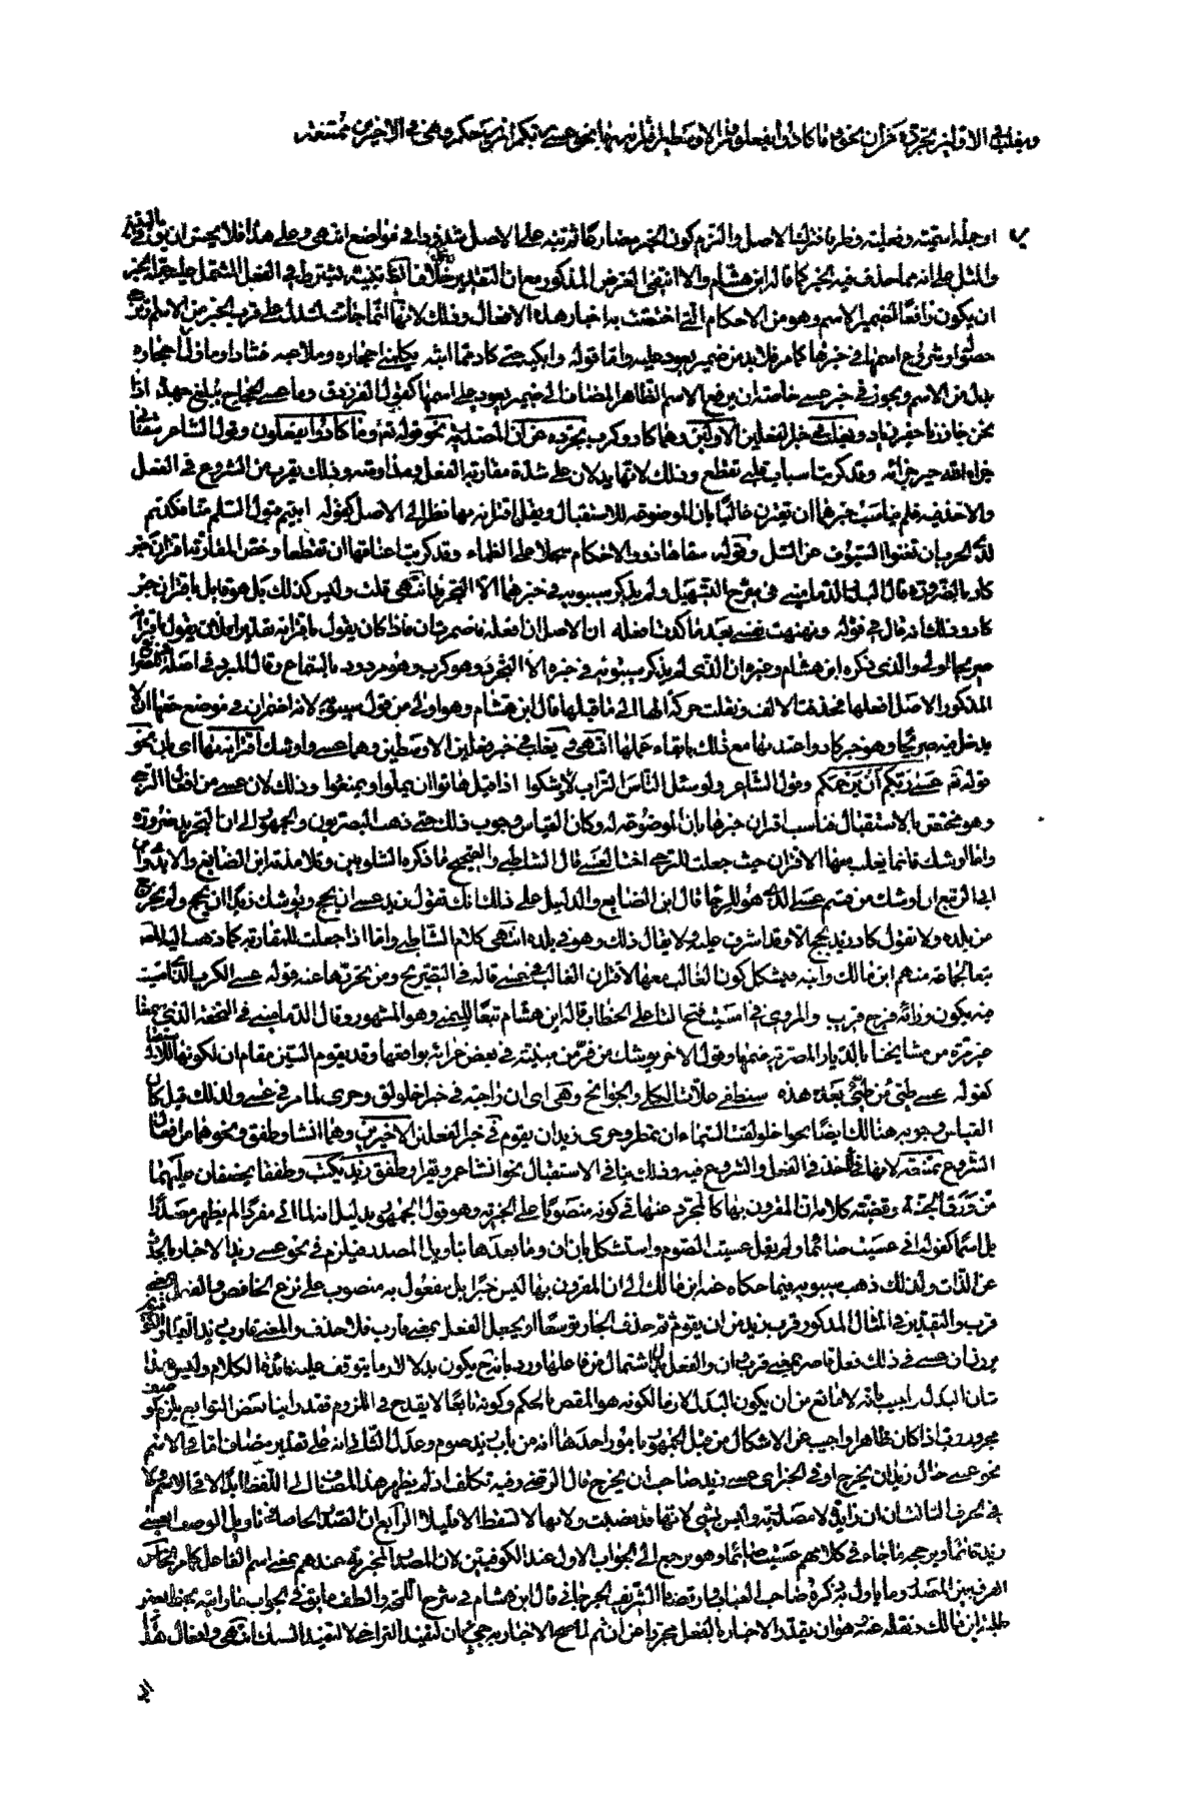 ويغلب في الاولين تجرده عن ان نحو وما كادوا يفعلون وفي الاوسطين اقترانه بها نحو عسى ربكم ان يرحمكم وهي في الاخيرين ممتنعة
او جملة اسمية وفعلية وظرفا فتركوا الاصل والتزم كون الخبر مضارعا ثم نبه على الاصل شذوذا في مواضع انتهى وعلى هذا فلا يحسن ان
والمثل على انه مما حذف فيه الخبر كما قاله ابن هشام والا انتفى الغرض المذكور مع ان التقدير خلاف يشترط في الفعل المشتمل عليه جملة الخبر
ان يكون رافعا لضمير الاسم وهو من الاحكام التي اختصت به اخبار هذه الافعال وذلك لانها انما جاءت لتدل على قرب الخبر من الاسم
وشروع اسمها في خبرها كما مر فلا بد من ضمير يعود عليه واما قوله وابكيه حتى كاد مما ابثه تكلمني احجاره وملاعبه فشاذ او ماول احجاره
بدل من الاسم ويجوز في خبر عسى خاصة ان يرفع الاسم الظاهر المضاف الى ضمير يعود على اسمها كقول الفرزدق وما ذا عسى الحجاج يبلغ جهده اذا
نحن جاوزنا حفير زياد ويغلب في خبر الفعلين الاولين وهما كاد وكرب تجرده عن ان المصدرية نحو قوله تعه وما كادوا يفعلون وقول الشاعر
وقد كربت اسباب قلبي تقطع وذلك لانهما يدلان على شدة مقاربة الفعل ومداومته وذلك يقرب من الشروع في الفعل
والاخذ فيه فلم يناسب خبرهما ان تقترن غالبا بان الموضوعة للاستقبال ويقل اقترانه بها نظرا الى الاصل كقوله ابيتم قبول السلم منا فكدتم
لدى الحرب ان تغنوا السيوف عن السل وقوله سقاها ذوو الاحلام سجلا على الظماء وقد كربت اعناقها ان تقطعا وخص المغاربة اقتران خبر
كاد بالضرورة قال البدر الدماميني في شرح التسهيل ولم يذكر سيبويه في خبرهما الا التجرد انتهى قلت وليس كذلك بل هو قايل باقتران خبر
كاد وذلك انه قال في قوله ونهنهت نفسي بعد ما كدت افعله ان الاصل ان افعله فاضمر ان فاذا كان يقول باقترانه تقديرا فلان يقول باقترانه
صريحا اولى والذي ذكره ابن هشام وغيره ان الذي لم يذكر سيبويه في خبره الا التجرد هو كرب وهو مردود بالسماع وقال المبرد في اصل
المذكور الاصل افعلها فحذفت الالف ونقلت حركة الهاء الى ما قبلها قال ابن هشام وهو اولى من قول سيبويه لانه اضمر ان في موضع حقها ان لا
يدخل فيه صريحا وهو خبر كاد واعتد بها مع ذلك بابقاء عملها انتهى ويغلب في خبر فعلين الاوسطين وهما عسى واوشك اقترانه بها اى بان نحو
قوله تع عسى ربكم ان يرحمكم وقول الشاعر ولو سئل الناس التراب لاوشكوا اذا قيل هاتوا ان يملوا ويمنعوا وذلك لان عسى من افعال الترجي
وهو مختص بالاستقبال فناسب اقتران خبرها بان الموضوعة له وكان القياس وجوب ذلك حتى ذهب البصريون والجمهور الى ان التجريد ضرورة
واما اوشك فانما يغلب معها الاقتران حيث جعلت للترجي اختا لعسى قال الشاطبي والصحيح ما ذكره الشلوبين وتلامذته ابن الضايع والابدي وابن
ابى الربيع ان اوشك من قسم عسى الذي هو للرجاء قال ابن الضايع والدليل على ذلك انك تقول زيد عسى ان يحج ويوشك زيد ان يحج ولم يخرج
من بلده ولا تقول كاد زيد يحج الا وقد اشرف عليه ولا يقال ذلك وهو في بلده انتهى كلام الشاطبي واما اذا جعلت للمقاربة كما ذهب اليه المصنف
تبعا لجماعة منهم ابن مالك وابنه فيشكل كون الغالب معها الاقتران الغالب مع عسى قاله في التصريح ومن تجردها عنه قوله عسى الكرب الذي امسيت
فيه يكون وراءه فرج قريب والمروي في امسيت فتح التاء على الخطاب قاله ابن هشام تبعا لليمني وهو المشهور وقال الدماميني في التحفة الذي
غير مرة من مشايخنا بالديار المصرية ضمها وقول الاخر يوشك من فر من منيته في بعض غراته يوافقها وقد يقوم السين مقام ان لكونها للاستقبال
كقوله عسى طيئ من طيئ بعد هذه ستطفئ غلات الكلى والجوانح وهي اى ان واجبة في خبر اخلولق وحرى لما مر في عسى ولذلك قيل كان
القياس وجوبه هنالك ايضا نحو اخلولقت السماء ان تمطر وحرى زيد ان يقوم وفي خبر الفعلين الاخيرين وهما انشا وطفق ونحوهما من افعال
الشروع ممتنعة لانها في الاخذ في الفعل والشروع فيه وذلك ينافي الاستقبال نحو انشا عمرو يقرا وطفق زيد يكتب وطفقا يخصفان عليهما
من ورق الجنة وقضية كلامه ان المقرون بها كالمجرد عنها في كونه منصوبا على الخبرية وهو قول الجمهور بدليل انه لما اتى مفردا لم يظهر مصدرا
بل اسما كقوله انى عسيت صائما ولم يقل عسيت الصوم واستشكل بان ان وما بعدها بتاويل المصدر فيلزم في نحو عسى زيد الاخبار بالحدث
عن الذات ولذلك ذهب سيبويه فيما حكاه عنه ابن مالك الى ان المقرون بها ليس خبرا بل مفعول به منصوب على نزع الخافض والفعل بمعنى
قرب والتقدير في المثال المذكور قرب زيد من ان يقوم ثم حذف الجار توسعا او يجعل الفعل بمعنى قارب فلا حذف والمعنى قارب زيد القيام
يرون ان عسى في ذلك فعل قاصر بمعنى قرب وان والفعل بدل اشتمال من فاعلها ورد بانه ح يكون بدلا لازما يتوقف عليه فائدة الكلام وليس هذا
شان البدل واجيب بانه لا مانع من ان يكون البدل لازما لكونه هو المقصود بالحكم وكونه تابعا لا يقدح في اللزوم فقد راينا بعض التوابع يلزم
مجرور رب اذا كان ظاهرا واجيب عن الاشكال من قبل الجمهور بامور احدها انه من باب زيد صوم وعدل الثاني انه على تقدير مضاف اما في الاسم
نحو عسى حال زيد ان يخرج او في الخبر اى عسى زيد صاحب ان يخرج قال الرضي وفيه تكلف اذ لم يظهر هذا المضاف الى اللفظ ابدا لا في الاسم ولا
في الخبر الثالث ان ان زائدة لا مصدرية وليس بشئ لانها قد نصبت ولانها لا تسقط الا قليلا الرابع ان المصدر الحاصل في تاويل الوصف اى عسى
زيد قائما ويرجحه ما جاء في كلامهم عسيت صائما وهو يرجع الى الجواب الاول عند الكوفيين لان المصدر المخبر به عندهم بمعنى اسم الفاعل كما مر الخامس
الفرق بين المصدر وما ياول به ذكره صاحب العباب وارتضاه الشريف الجرجاني قال ابن هشام في شرح اللمحة والطف ما يق في الجواب ما رايته بخط بعض
طلبة ابن مالك ونقله عنه هو ان يقدر الاخبار بالفعل مجردا عن ان ثم لما صح الاخبار به جئ بان لتفيد التراخي لا لتفيد السبك انتهى وافعال هذا